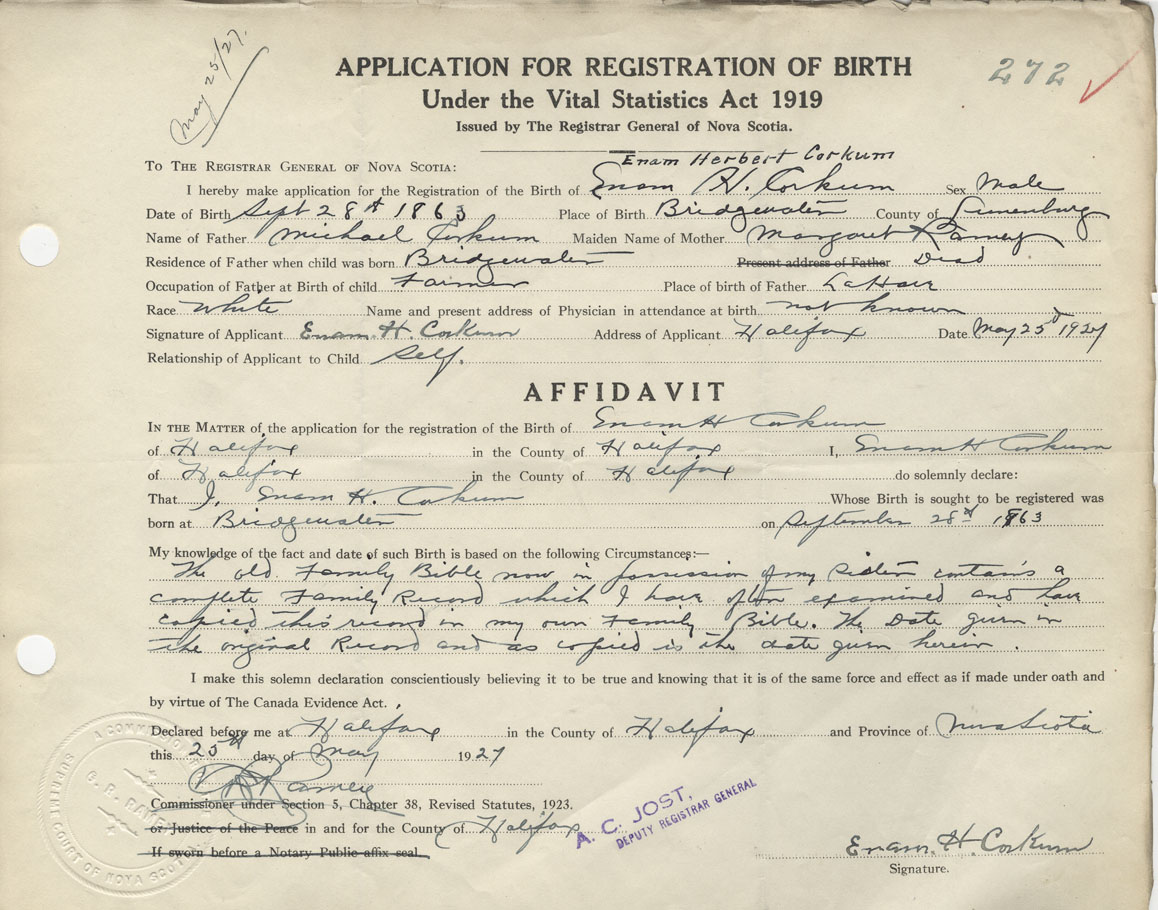 May 25/27.
272
APPLICATION FOR REGISTRATION OF BIRTH
Under the Vital Statistics Act 1919
Issued by The Registrar General of Nova Scotia.
Enam Herbert Corkum
TO THE REGISTRAR GENERAL OF NOVA SCOTIA:
I hereby make application for the Registration of the Birth of Enam H. Corkum Sex Male
Date of Birth Sept 28th 1863 Place of Birth Bridgewater County of Lunenburg
Name of Father Michael Corkum Maiden Name of Mother Margaret Ramey
Residence of Father when child was born Bridgewater Present address of Father Dead
Occupation of Father at Birth of child Farmer Place of birth of Father LaHave
Race White Name and present address of Physician in attendance at birth not known
Signature of Applicant Enam. H. Corkum Address of Applicant Halifax Date May 25th 1927
Relationship of Applicant to Child Self.
AFFIDAVIT
IN THE MATTER of the application for the registration of the Birth of Enam H Corkum
of Halifax in the County of Halifax I, Enam H Corkum
of Halifax in the County of Halifax do solemnly declare:
That I, Enam H. Corkum Whose Birth is sought to be registered was
born at Bridgewater on September 28th 1863
My knowledge of the fact and date of such Birth is based on the following Circumstances:—
The old Family Bible now in possession of my Sister contains a
complete Family Record which I have often examined and have
copied this record in my own Family Bible. The Date given in
the original Record and as copied is the date given herein.
I make this solemn declaration conscientiously believing it to be true and knowing that it is of the same force and effect as if made under oath and
by virtue of The Canada Evidence Act.
Declared before me at Halifax in the County of Halifax and Province of Nova Scotia
this 25th day of May 1927
Ramey
Commissioner under Section 5, Chapter 38, Revised Statutes, 1923.
or Justice of the Peace in and for the County of Halifax
If sworn before a Notary Public affix seal.
A. C. JOST,
DEPUTY REGISTRAR GENERAL
Enam. H. Corkum
Signature.
A COMMISSIONER
SUPREME COURT OF NOVA SCOTIA